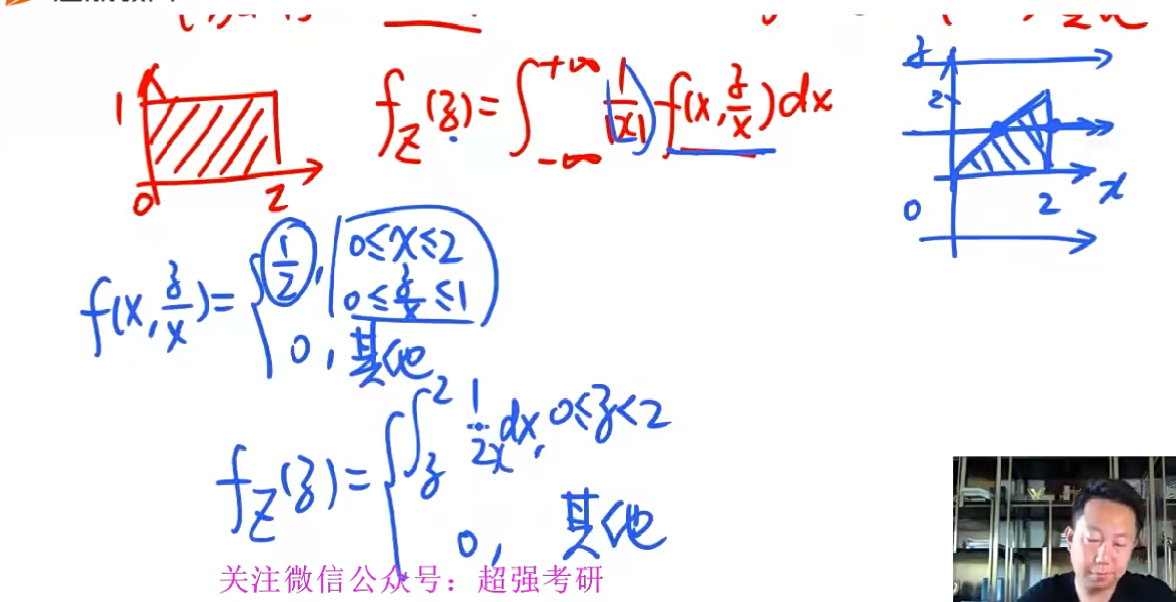 1
0
2
f_Z(z) = ∫_{-∞}^{+∞} 1/|x| f(x, z/x) dx
z
2
0
2
x
f(x, z/x) = { 1/2, 0≤x≤2
0≤z/x≤1
0, 其他
f_Z(z) = { ∫_z^2 1/2x dx, 0≤z<2
0, 其他
关注微信公众号：超强考研